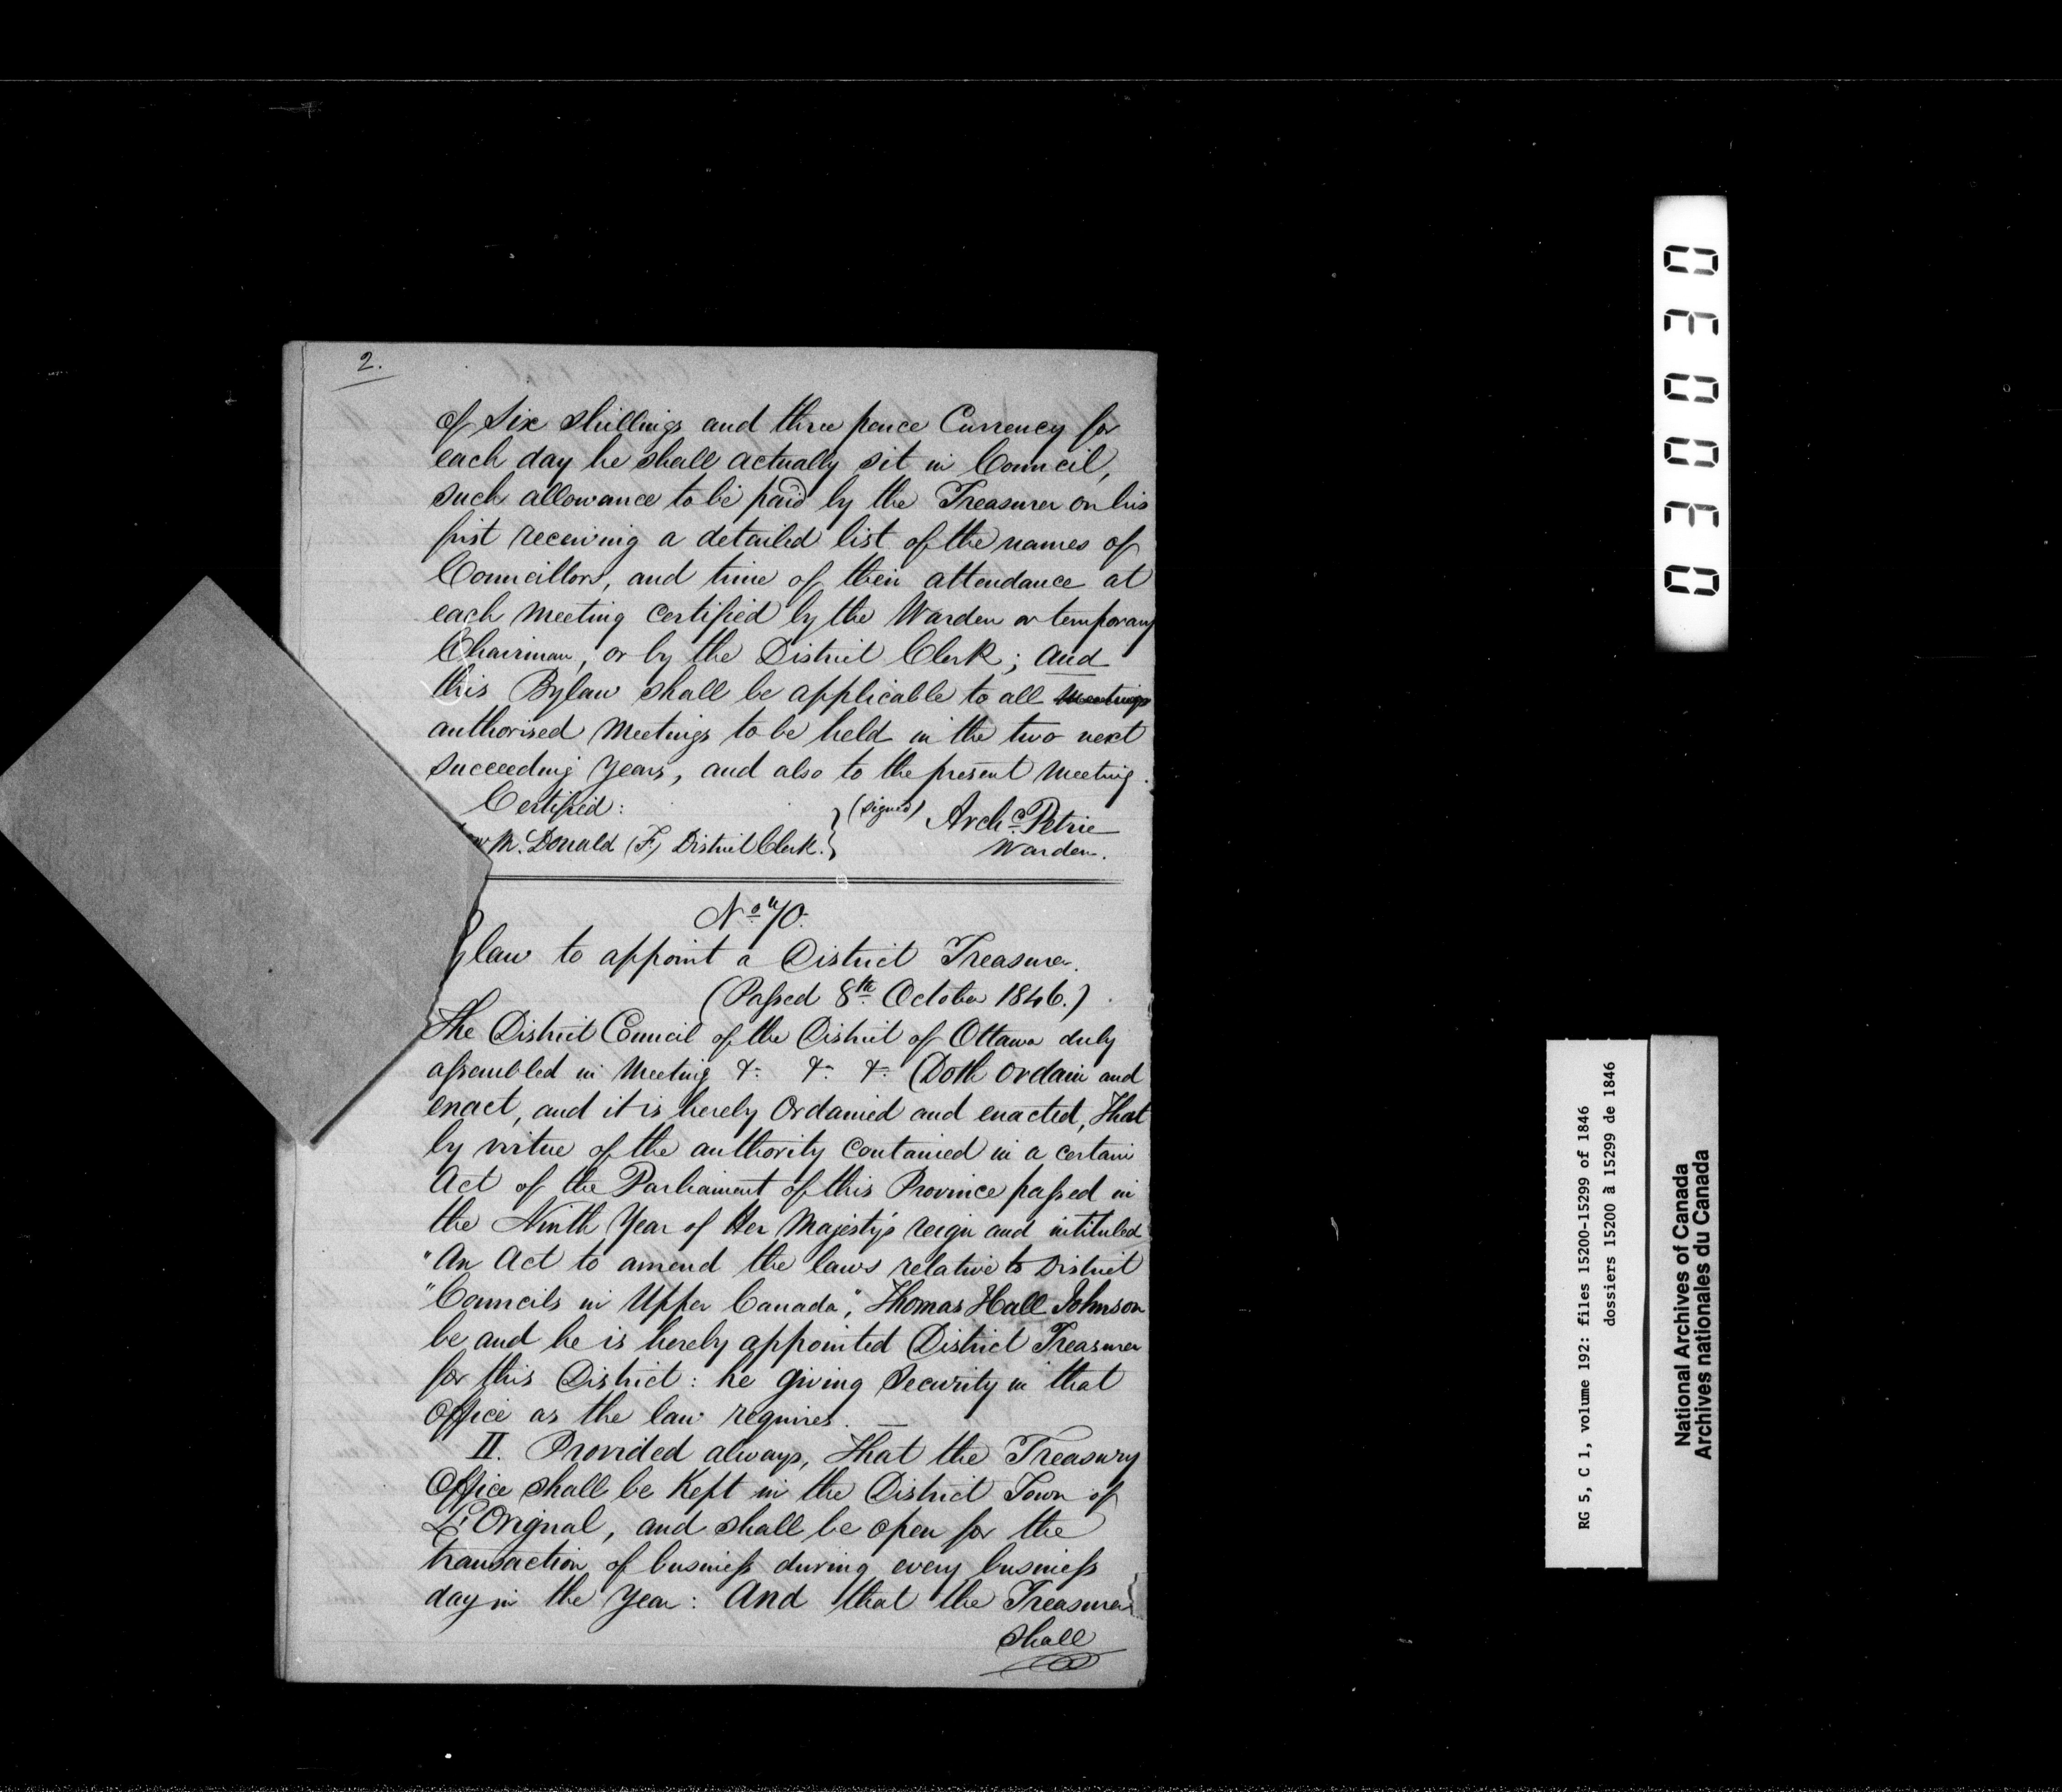 2.
of Six Shillings and three pence Currency for
each day he shall actually sit in Council,
such allowance to be paid by the Treasurer on his
first receiving a detailed list of the names of
Councillors, and time of their attendance at
each meeting certified by the Warden or temporary
Chairman, or by the District Clerk; And
this Bylaw shall be applicable to all Meetings
authorised Meetings to be held in the two next
succeeding Years, and also to the present Meeting.
Certified: (signed) Archd. Petrie
Donald (F.) District Clerk. } Warden.
No. 70.
ylaw to appoint a District Treasurer.
(Passed 8th October 1846.)
The District Council of the District of Ottawa duly
assembled in Meeting &. &. &. Doth Ordain and
enact, and it is hereby Ordained and enacted, That
by virtue of the authority contained in a certain
Act of the Parliament of this Province passed in
the Ninth Year of Her Majesty's reign and intituled
"An Act to amend the laws relative to District
"Councils in Upper Canada", Thomas Hall Johnson
be and he is hereby appointed District Treasurer
for this District: he giving Security in that
Office as the law requires. —
II. Provided always, That the Treasury
Office shall be Kept in the District Town of
L'Orignal, and shall be open for the
transaction of business during every business
day in the Year: And that the Treasurer
Shall
030030
RG 5, C 1, volume 192: files 15200-15299 of 1846
dossiers 15200 à 15299 de 1846
National Archives of Canada
Archives nationales du Canada